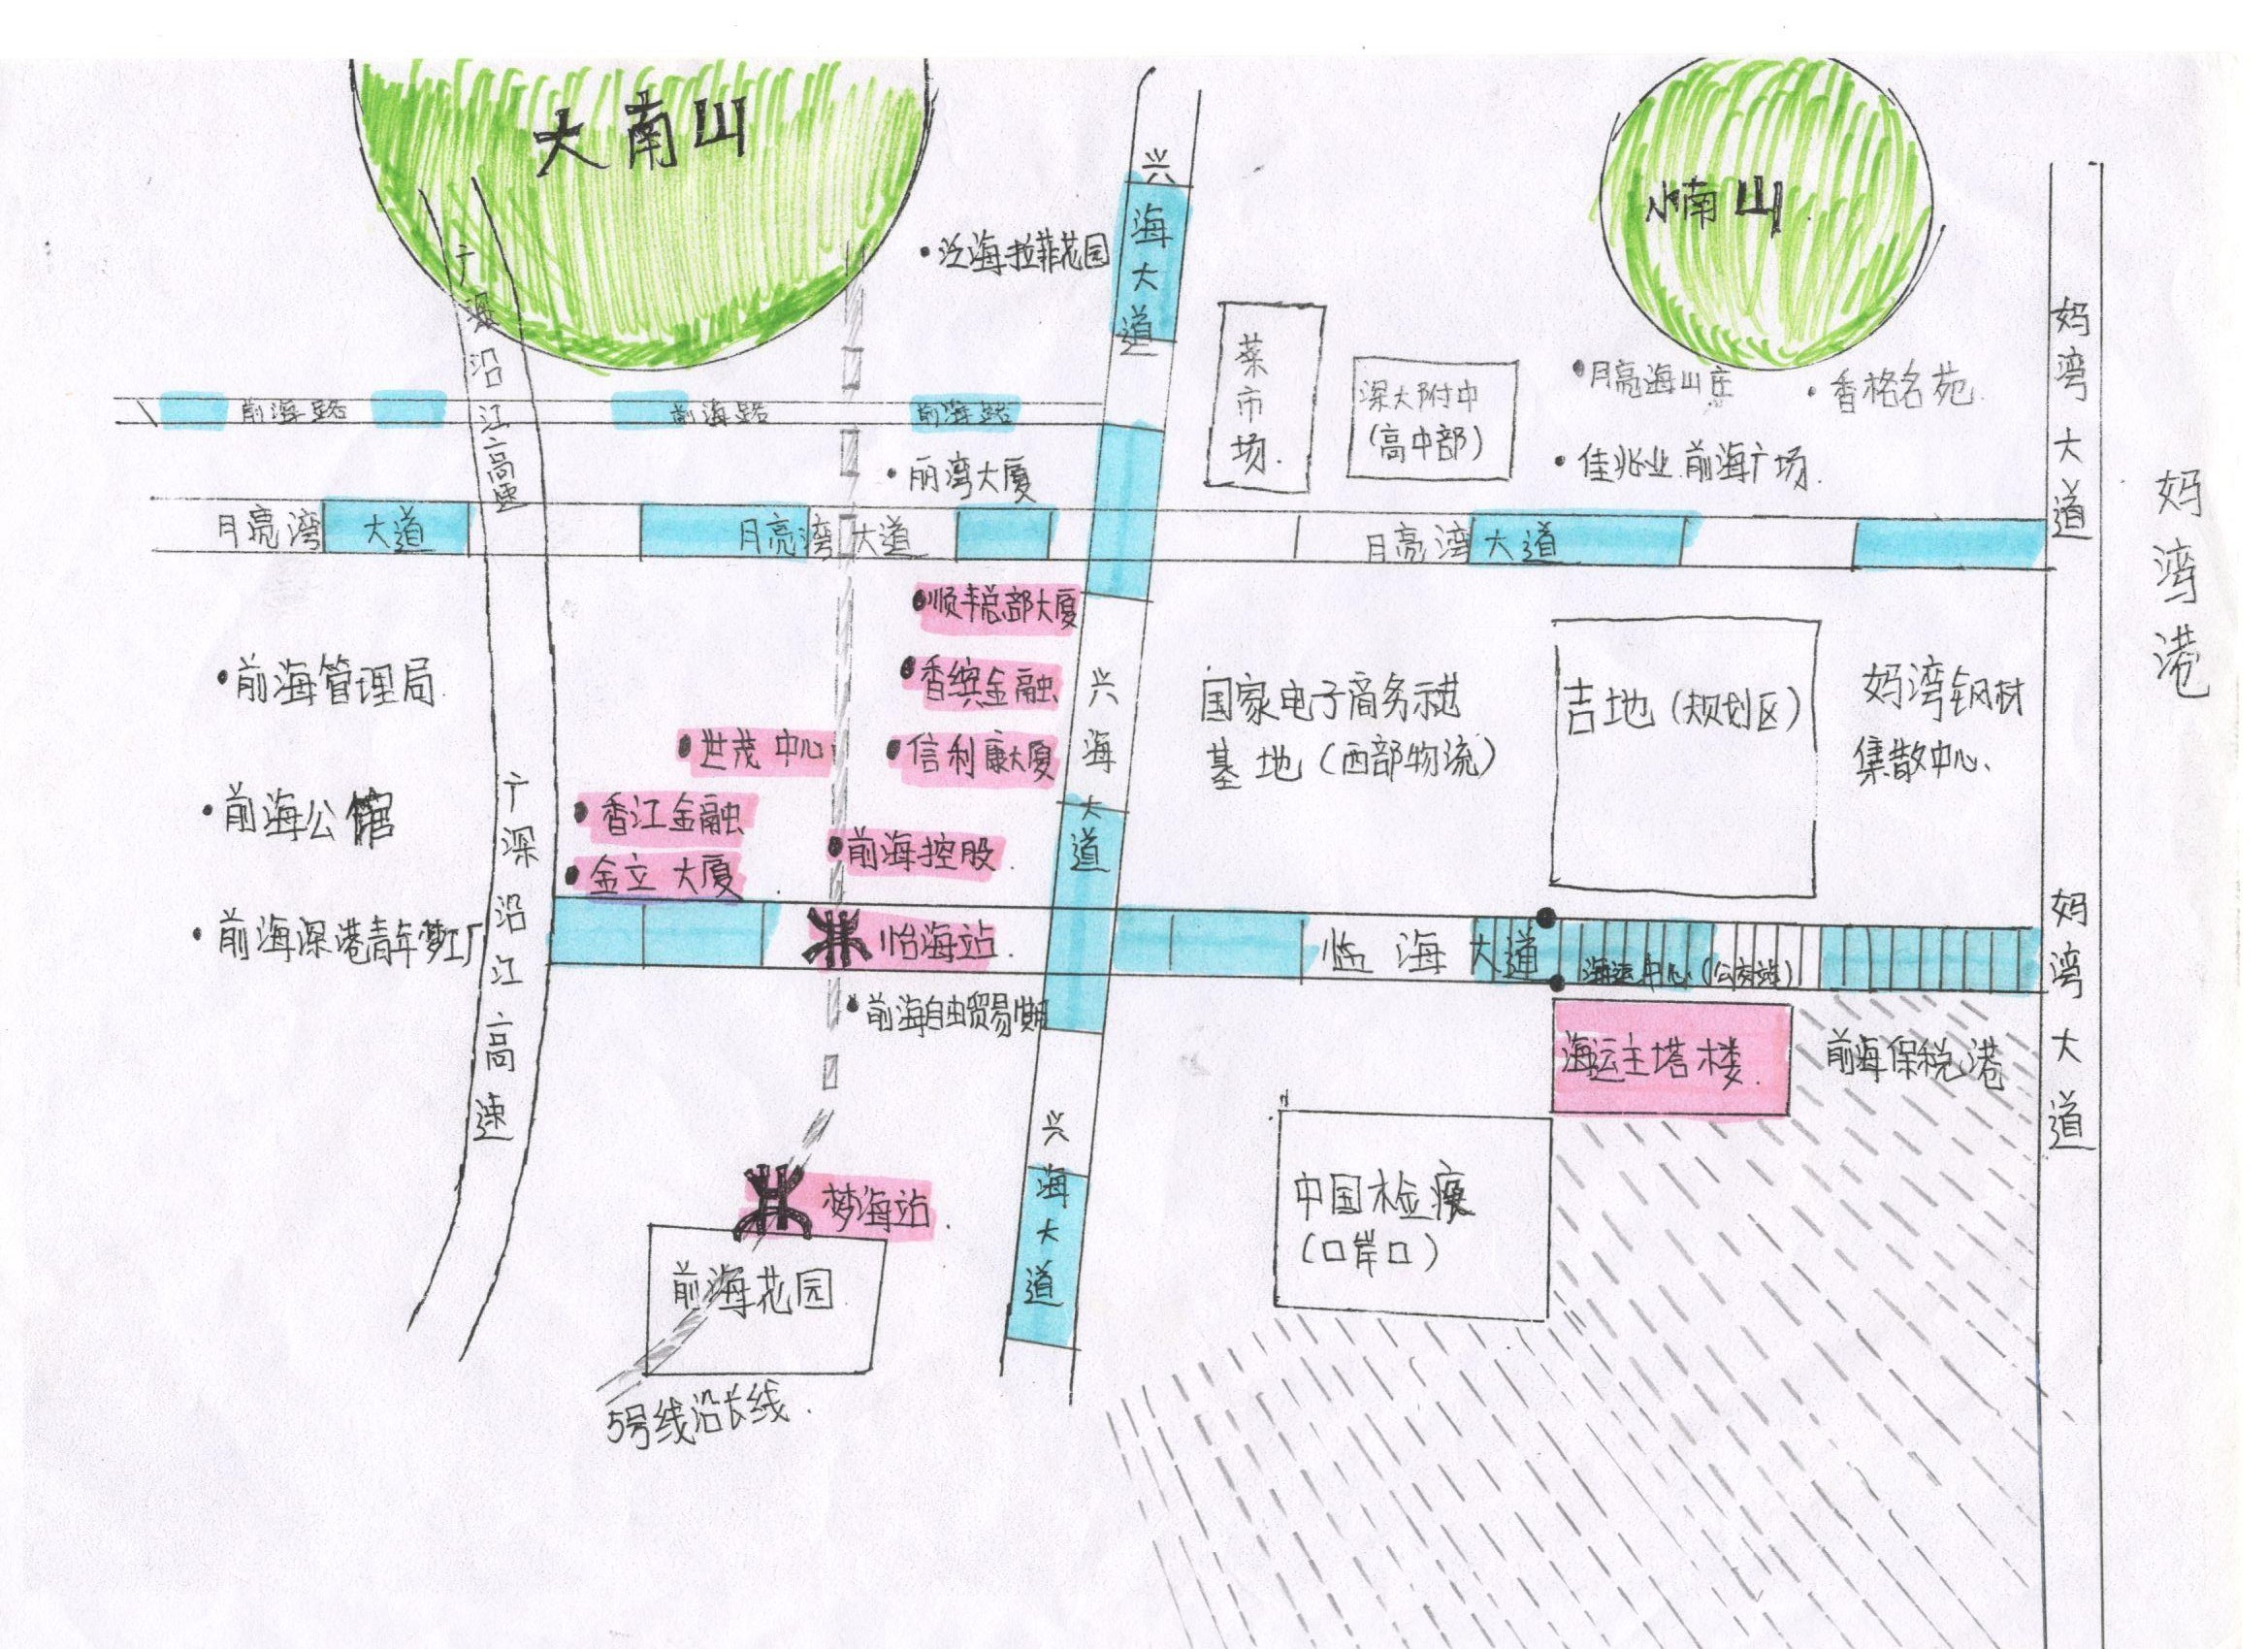 大南山
小南山
兴海大道
泛海拉菲花园
广深沿江高速
妈湾大道
菜市场.
深大附中
(高中部)
月亮海山庄
香格名苑.
前海路
前海路
前海路
丽湾大厦
佳兆业前海广场.
妈湾港
月亮湾大道
月亮湾大道
月亮湾大道
顺丰总部大厦
前海管理局
香缤金融
兴海大道
国家电子商务示进
基地(西部物流)
吉地(规划区)
妈湾钢材
集散中心、
世茂中心
信利康大厦
前海公馆
香江金融
广深沿江高速
前海控股.
金立大厦
前海深港青年梦工厂
怡海站.
临海大道
海运中心(公交站)
妈湾大道
前海自由贸易
海运主塔楼.
前海保税港
兴海大道
梦海站.
中国检疫
(口岸口)
前海花园
5号线沿长线.